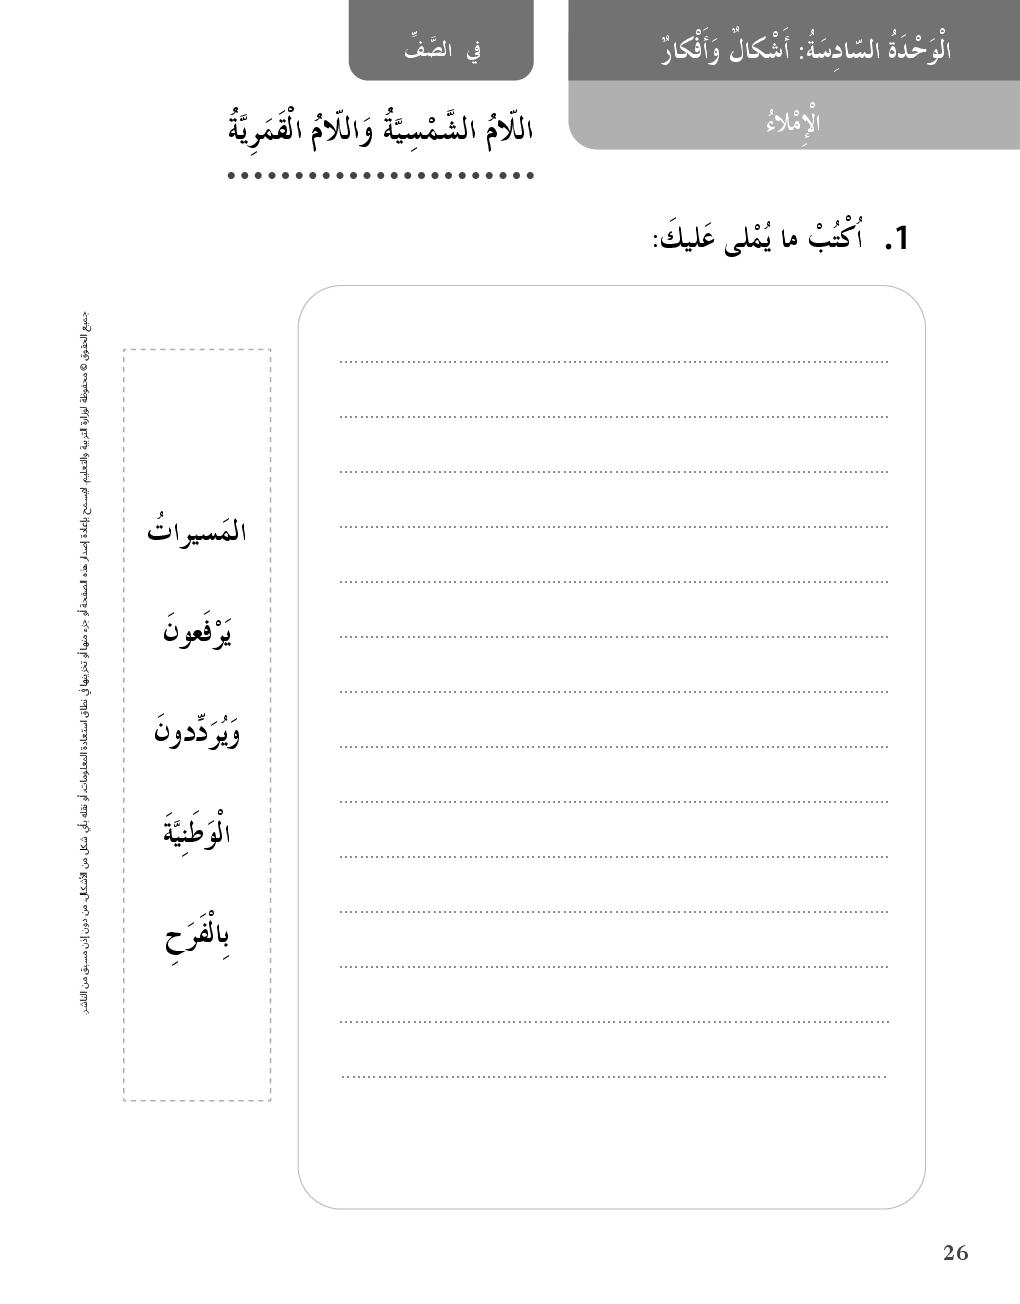 الْوَحْدَةُ السّادِسَةُ: أَشْكالٌ وَأَفْكارٌ
في الصَّفِّ
الْإِمْلاءُ
اللّامُ الشَّمْسِيَّةُ وَاللّامُ الْقَمَرِيَّةُ
1. اُكْتُبْ ما يُمْلى عَليكَ:
المَسيراتُ
يَرْفَعونَ
وَيُرَدِّدونَ
الْوَطَنِيَّةَ
بِالْفَرَحِ
جميع الحقوق © محفوظة لوزارة التربية والتعليم. لايسمح بإعادة إصدار هذه الصفحة أو جزء منها أو تخزينها في نطاق استعادة المعلومات، أو نقله بأي شكل من الأشكال، من دون إذن مسبق من الناشر.
26